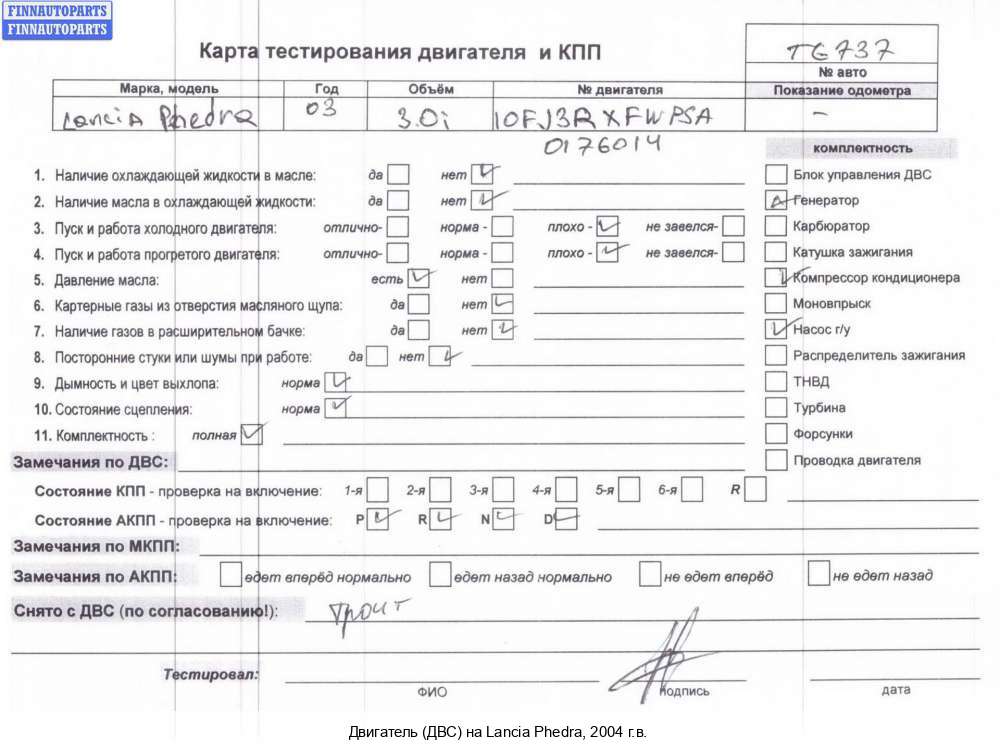 FINNAUTOPARTS
FINNAUTOPARTS
Карта тестирования двигателя и КПП
TG737
№ авто
Марка, модель Год Объём № двигателя Показание одометра
Lancia Phedra 03 3.0i 10FJ3RXFWPSA –
0176014
комплектность
1. Наличие охлаждающей жидкости в масле: да нет
Блок управления ДВС
2. Наличие масла в охлаждающей жидкости: да нет
Генератор
3. Пуск и работа холодного двигателя: отлично- норма - плохо - не завелся-
Карбюратор
4. Пуск и работа прогретого двигателя: отлично- норма - плохо - не завелся-
Катушка зажигания
5. Давление масла: есть нет
Компрессор кондиционера
6. Картерные газы из отверстия масляного щупа: да нет
Моновпрыск
7. Наличие газов в расширительном бачке: да нет
Насос г/у
8. Посторонние стуки или шумы при работе: да нет
Распределитель зажигания
9. Дымность и цвет выхлопа: норма
ТНВД
10. Состояние сцепления: норма
Турбина
11. Комплектность : полная
Форсунки
Замечания по ДВС:
Проводка двигателя
Состояние КПП - проверка на включение: 1-я 2-я 3-я 4-я 5-я 6-я R
Состояние АКПП - проверка на включение: P R N D
Замечания по МКПП:
Замечания по АКПП: едет вперёд нормально едет назад нормально не едет вперёд не едет назад
Снято с ДВС (по согласованию!): троит
Тестировал:
ФИО подпись дата
Двигатель (ДВС) на Lancia Phedra, 2004 г.в.